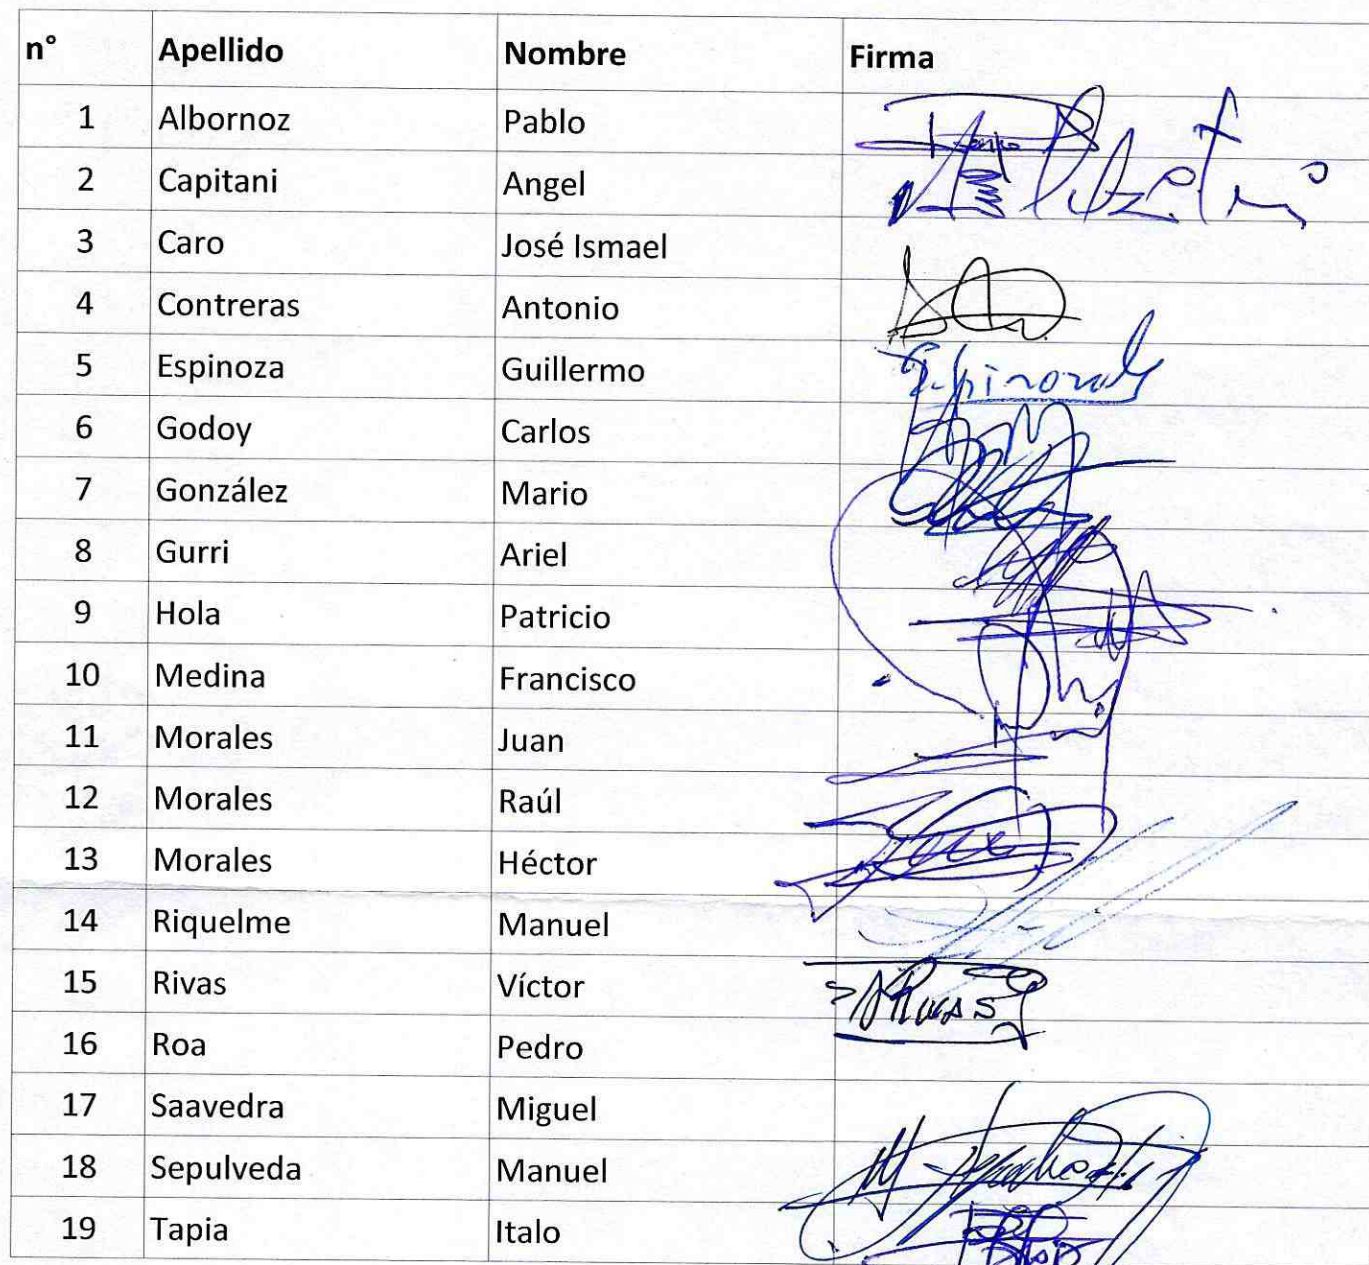 n° Apellido Nombre Firma
1 Albornoz Pablo
2 Capitani Angel
3 Caro José Ismael
4 Contreras Antonio
5 Espinoza Guillermo
6 Godoy Carlos
7 González Mario
8 Gurri Ariel
9 Hola Patricio
10 Medina Francisco
11 Morales Juan
12 Morales Raúl
13 Morales Héctor
14 Riquelme Manuel
15 Rivas Víctor
16 Roa Pedro
17 Saavedra Miguel
18 Sepulveda Manuel
19 Tapia Italo